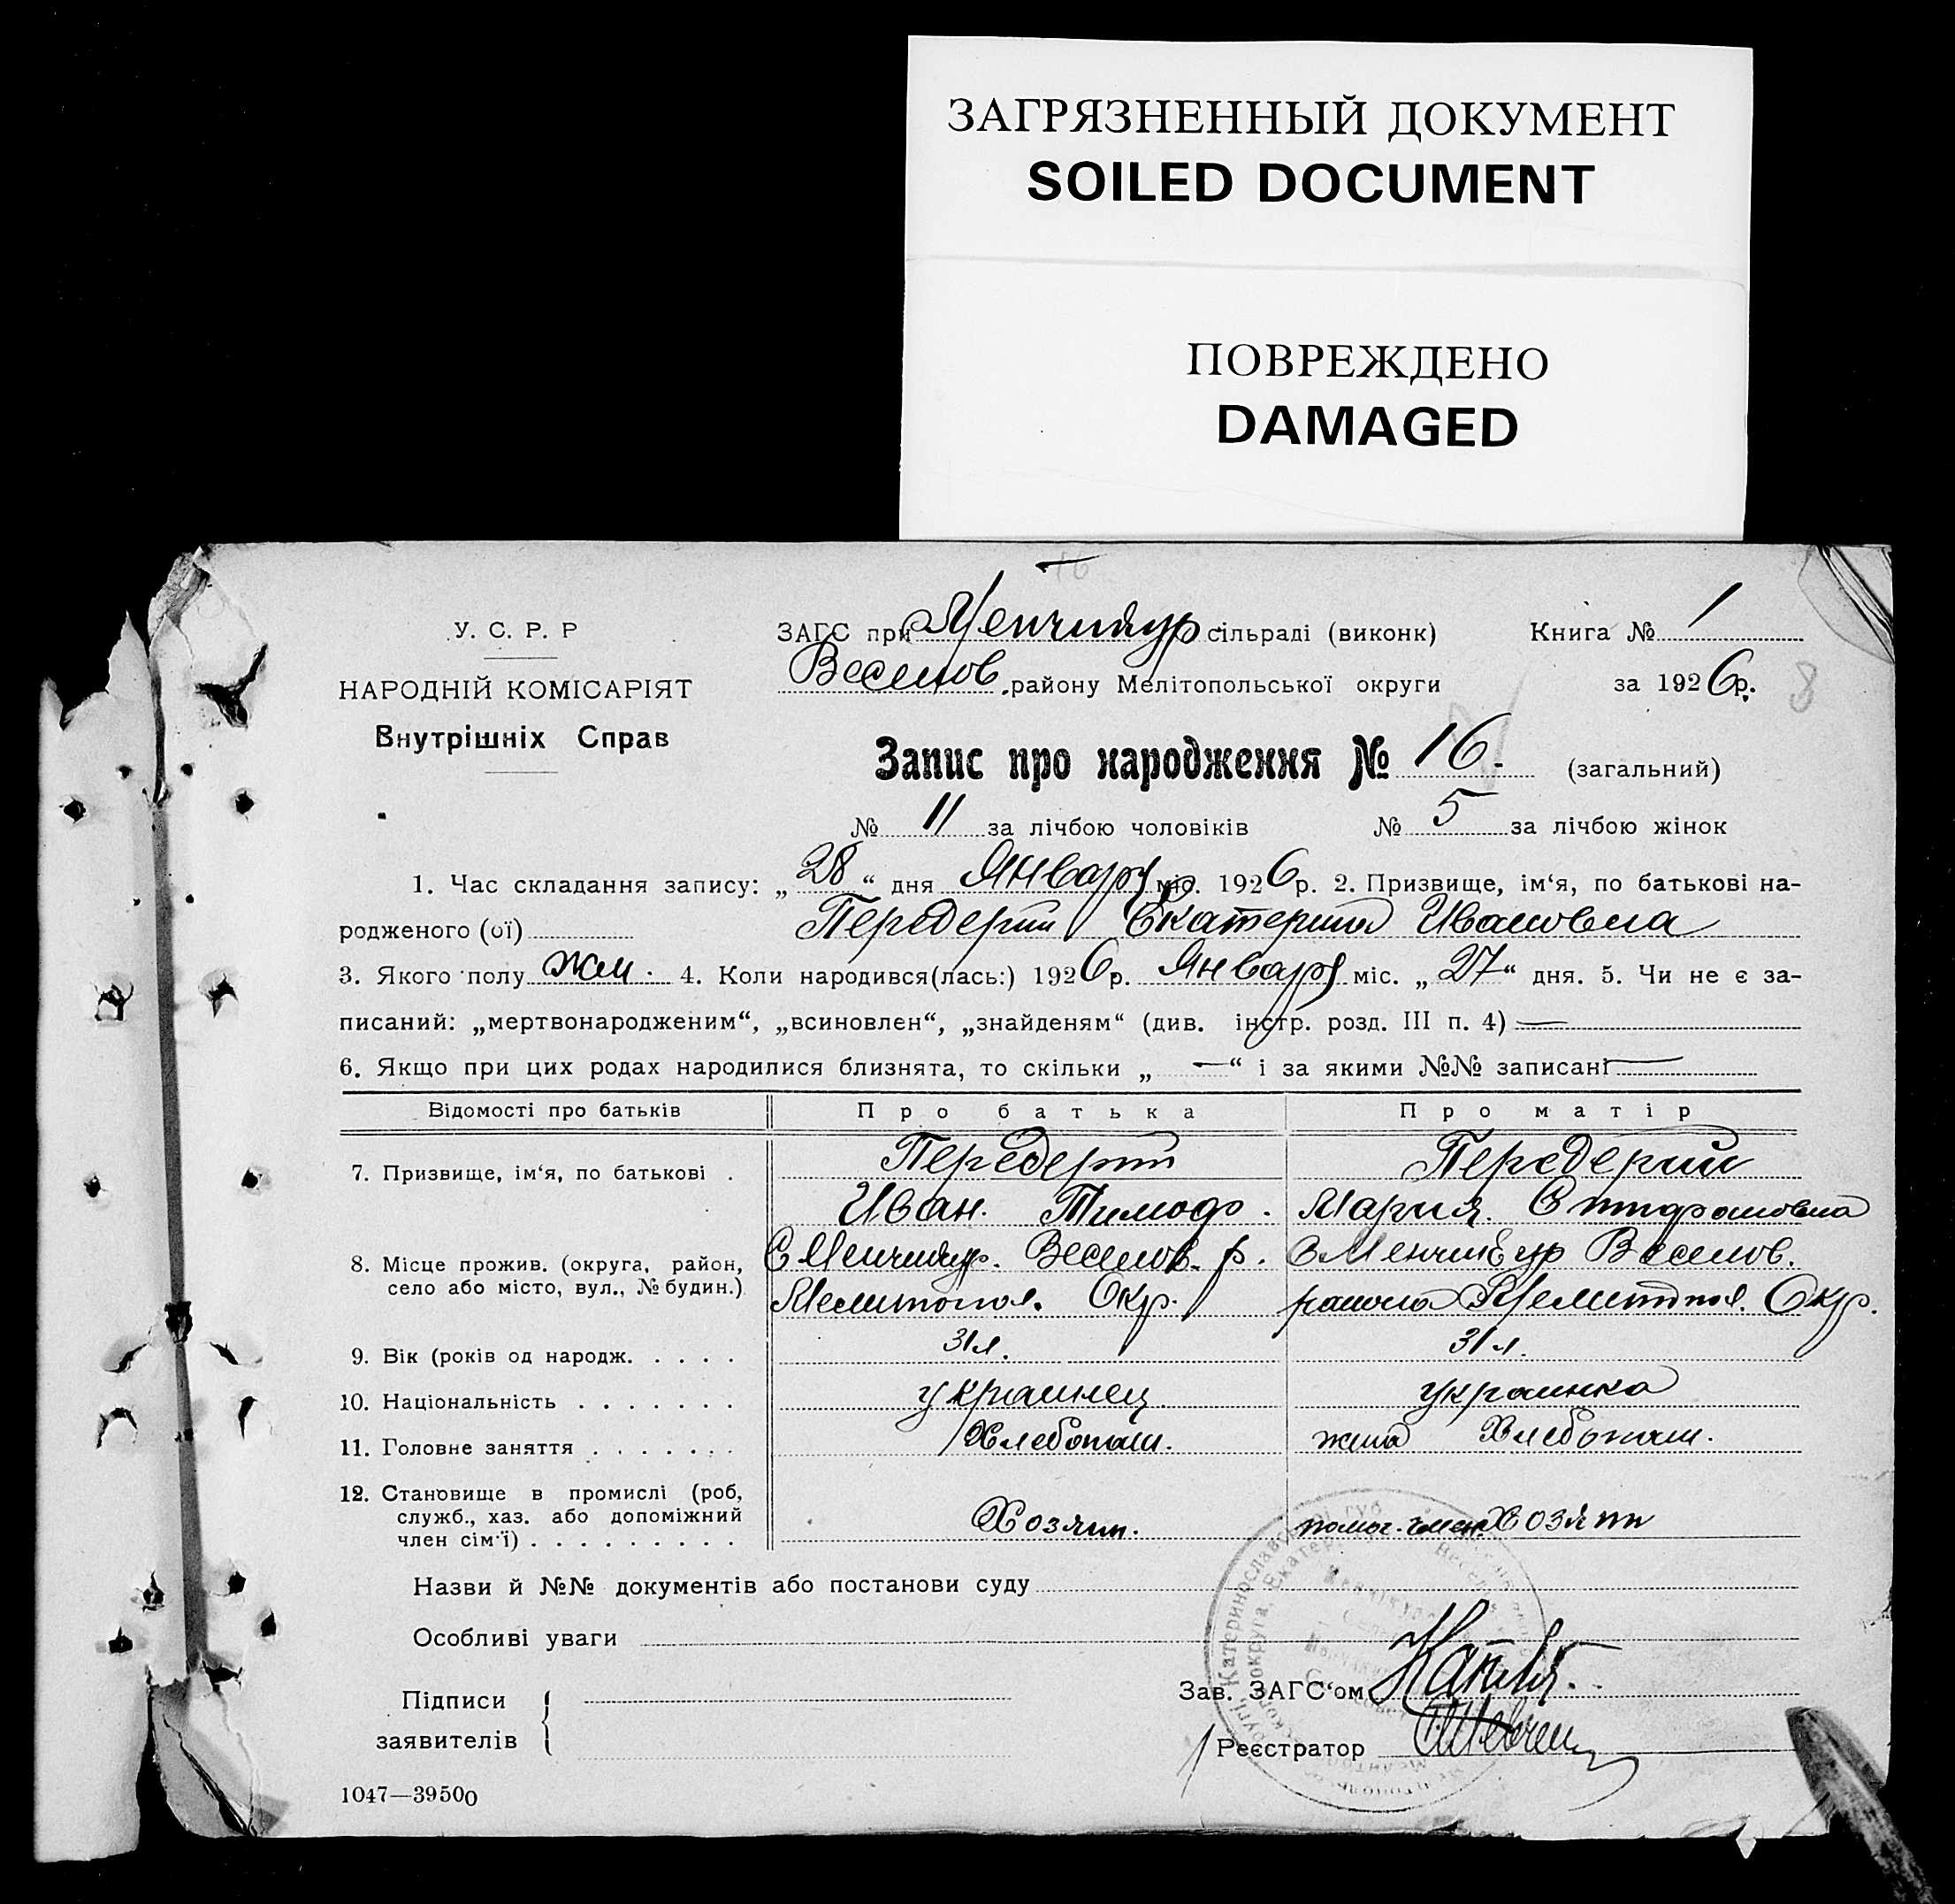 ЗАГРЯЗНЕННЫЙ ДОКУМЕНТ
SOILED DOCUMENT
ПОВРЕЖДЕНО
DAMAGED
У. С. Р. Р
НАРОДНІЙ КОМІСАРІЯТ
Внутрішніх Справ
ЗАГС при Менчикур сільраді (виконк) Книга № 1
Веселов. району Мелітопольської округи за 1926р.
8
Запис про народження № 16. (загальний)
№ 11 за лічбою чоловіків № 5 за лічбою жінок
1. Час складання запису: „28“ дня Январ міс. 1926р. 2. Призвище, ім‘я, по батькові на-
родженого (ої) Передерий Екатерина Ивановна
3. Якого полу жен. 4. Коли народився(лась:) 1926р. Январ міс. „27“ дня. 5. Чи не є за-
писаний: „мертвонародженим“, „всиновлен“, „знайденям“ (див. інстр. розд. III п. 4) —
6. Якщо при цих родах народилися близнята, то скільки „ — “ і за якими №№ записані —
Відомості про батьків Про батька Про матір
7. Призвище, ім‘я, по батькові . Передерий Передерий
Иван. Тимоф. Мария
8. Місце прожив. (округа, район, С Менчикур. Веселов. р. С Менчикур Веселов.
село або місто, вул., № будин.) Мелитопол. Окр. района Мелитопол. Окр.
9. Вік (років од народж. . . . . 31 л. 31 л.
10. Національність . . . . . . . украинец украинка
11. Головне заняття . . . . . . . Хлебопаш. жена Хлебопаш.
12. Становище в промислі (роб,
служб., хаз. або допоміжний Хозяин. помог. член. Хозяин
член сім‘ї) . . . . . . . . .
Назви й №№ документів або постанови суду
Особливі уваги
Підписи
заявителів
Зав. ЗАГС‘ом
Реєстратор
1047—39500